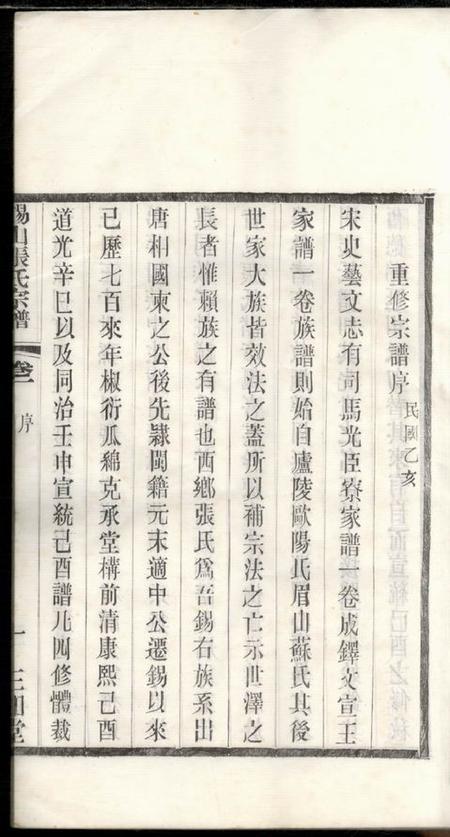 重修宗譜序 民國乙亥
宋史藝文志有司馬光臣寮家譜一卷成鐸文宣王
家譜一卷族譜則始自廬陵歐陽氏眉山蘇氏其後
世家大族皆效法之蓋所以補宗法之亡示世澤之
長者惟賴族之有譜也西鄉張氏爲吾錫右族系出
唐相國柬之公後先隸閩籍元末適中公遷錫以來
已歷七百來年椒衍瓜綿克承堂構前清康熙己酉
道光辛巳以及同治壬申宣統己酉譜凡四修體裁
錫山張氏宗譜 卷一 序 一 三知堂